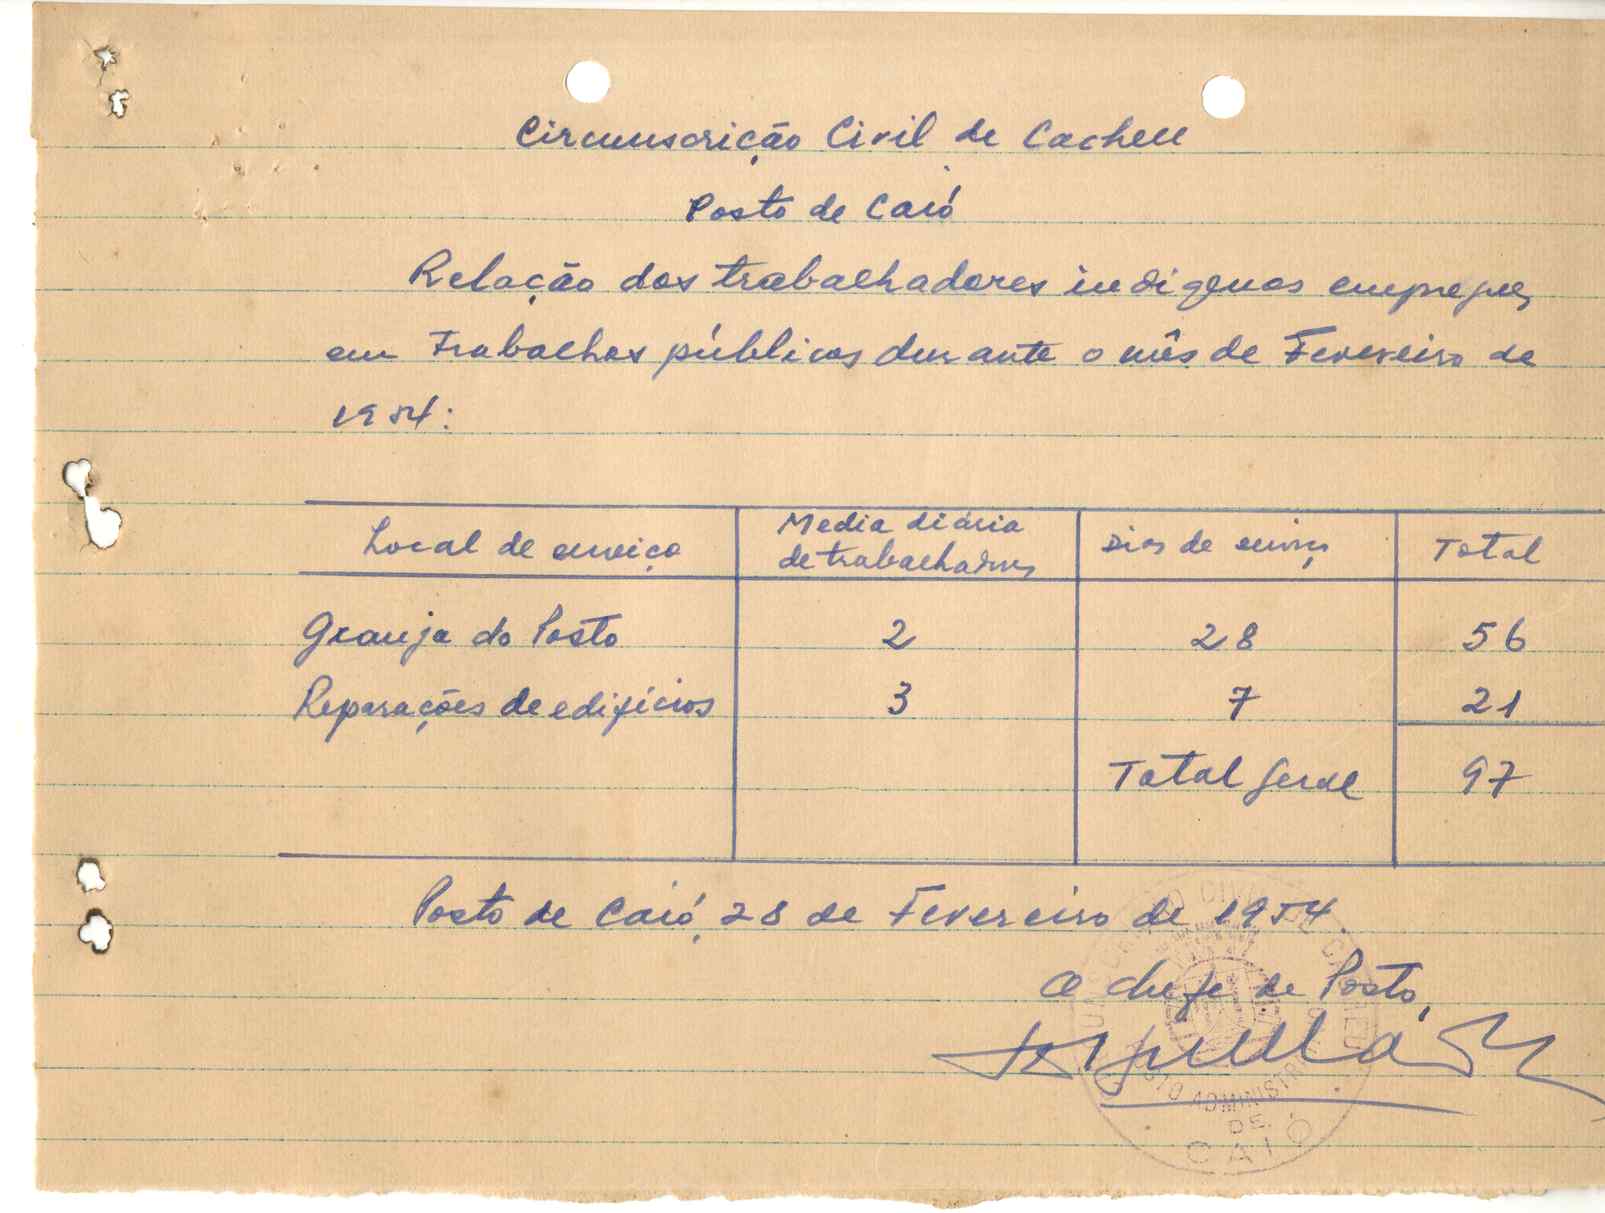 Circunscrição Civil de Cacheu
Posto de Caió
Relação dos trabalhadores indigenas
em Trabalhos públicos durante o mês de Fevereiro de
1954:
Local de serviço Media diária de trabalhadores Dias de serviço Total
Granja do Posto 2 28 56
Reparações de edifícios 3 7 21
Total Geral 97
Posto de Caió, 28 de Fevereiro de 1954.
O Chefe de Posto,
POSTO ADMINISTRATIVO
DE
CAIÓ